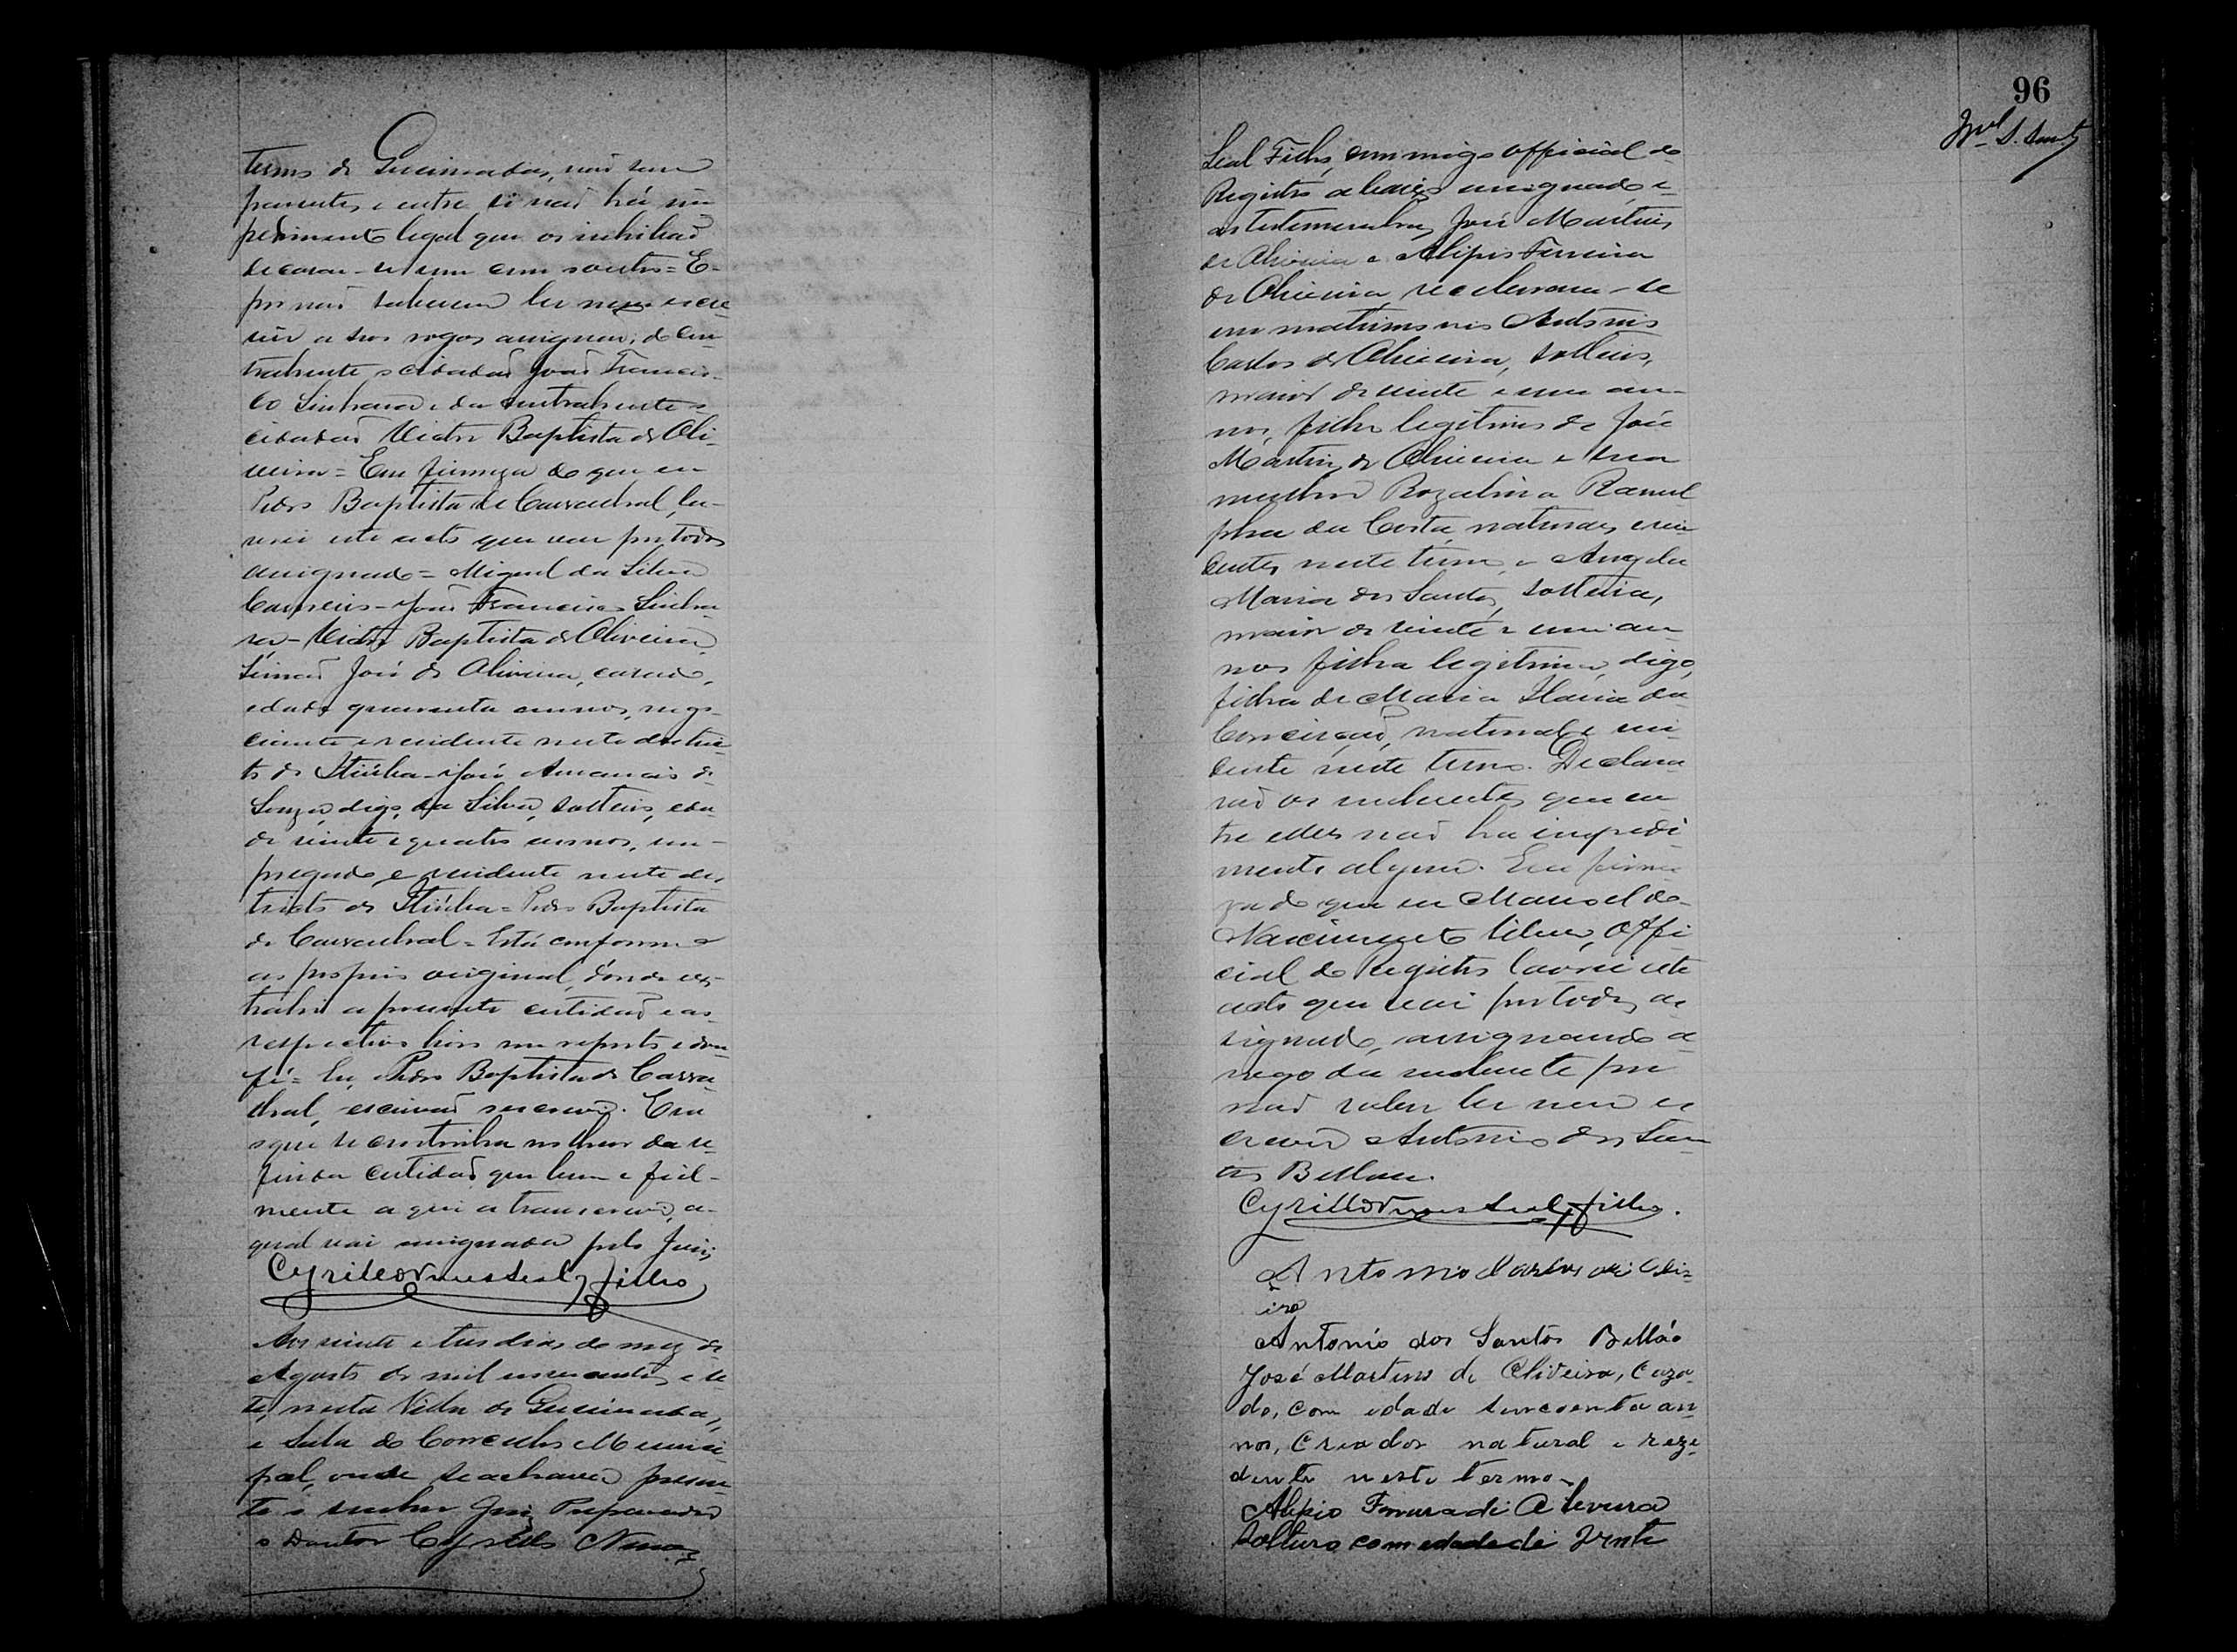 termo de Queimadas, não sem
parentes, e entre si não há im
pedimento legal que os inhibão
de casar-se um com o outro = E
por não saberem ler nem escre
ver a seos rogos assignou; do con
trahente o cidadão João Francis
co Sinhana e da contrahente o
cidadão Victor Baptista de Oli-
veira = Em firmeza do que eu
Pedro Baptista de Carvalhal, la-
vrei este acto que vai por todos
assignado = Miguel da Silva
Carneiro - João Francisco
Victor Baptista de Oliveira
Simão José de Oliveira, casado,
edade quarenta annos, nego-
ciante e residente neste distric
to de Itiúba - José Amancio de
Souza, digo, da Silva, solteiro, eda
de vinte e quatro annos, em-
pregado e residente neste dis
tricto de Itiúba = Pedro Baptista
de Carvalhal = Está conforme
ao proprio original, donde ex-
trahi a presente certidão e ao
respectivo livro me reporto e dou
fé = Eu, Pedro Baptista de Carva
lhal, escrivão, escrevi. Era
o que se continha no theor da re-
ferida certidão que bem e fiel-
mente aqui a transcrevi, a
qual vai assignada pelo Juiz
Cyrillo Nunes Leal filho
Aos vinte e tres dias do mez de
Agosto de mil novecentos e se
te, nesta Villa de Queimadas,
e Sala do Conselho Munici
pal, onde se achava presen
te o senhor Juiz Preparador
o Doutor Cyrillo Nunes
96
Leal Filho, commigo official do
Registro abaixo assignado e
as testemunhas José Martins
de Oliveira e Alipio Ferreira
de Oliveira, receberam-se
em matrimonio Antonio
Carlos de Oliveira, solteiro,
maior de vinte e um an-
nos, filho legitimo de José
Martins de Oliveira e sua
mulher Rozalina Ramul
pha da Costa, naturaes e resi
dentes neste termo, e Angela
Maria dos Santos, solteira,
maior de vinte e um an
nos filha legitima, digo,
filha de Maria Ilaria da
Conceição, natural e resi
dente neste termo. Declara
rão os nubentes que en
tre elles não ha impedi
mento algum. Em firme
za do que eu Manoel do
Nascimento Silva, Offi
cial do Registro lavrei este
acto que vai por todos as
signado, assignando a
rogo da nubente por
não saber ler nem es
crever Antonio dos San
tos Bellau.
Cyrillo Nunes Leal filho.
Antonio Carlos de Olive
ira
Antonio dos Santos Bellão
José Martins de Oliveira, Caza
do, com edade cincoenta an
nos, Criador natural e reze
dente neste termo.
Alipio Ferrura di Olevera
Solturo com edade di vente